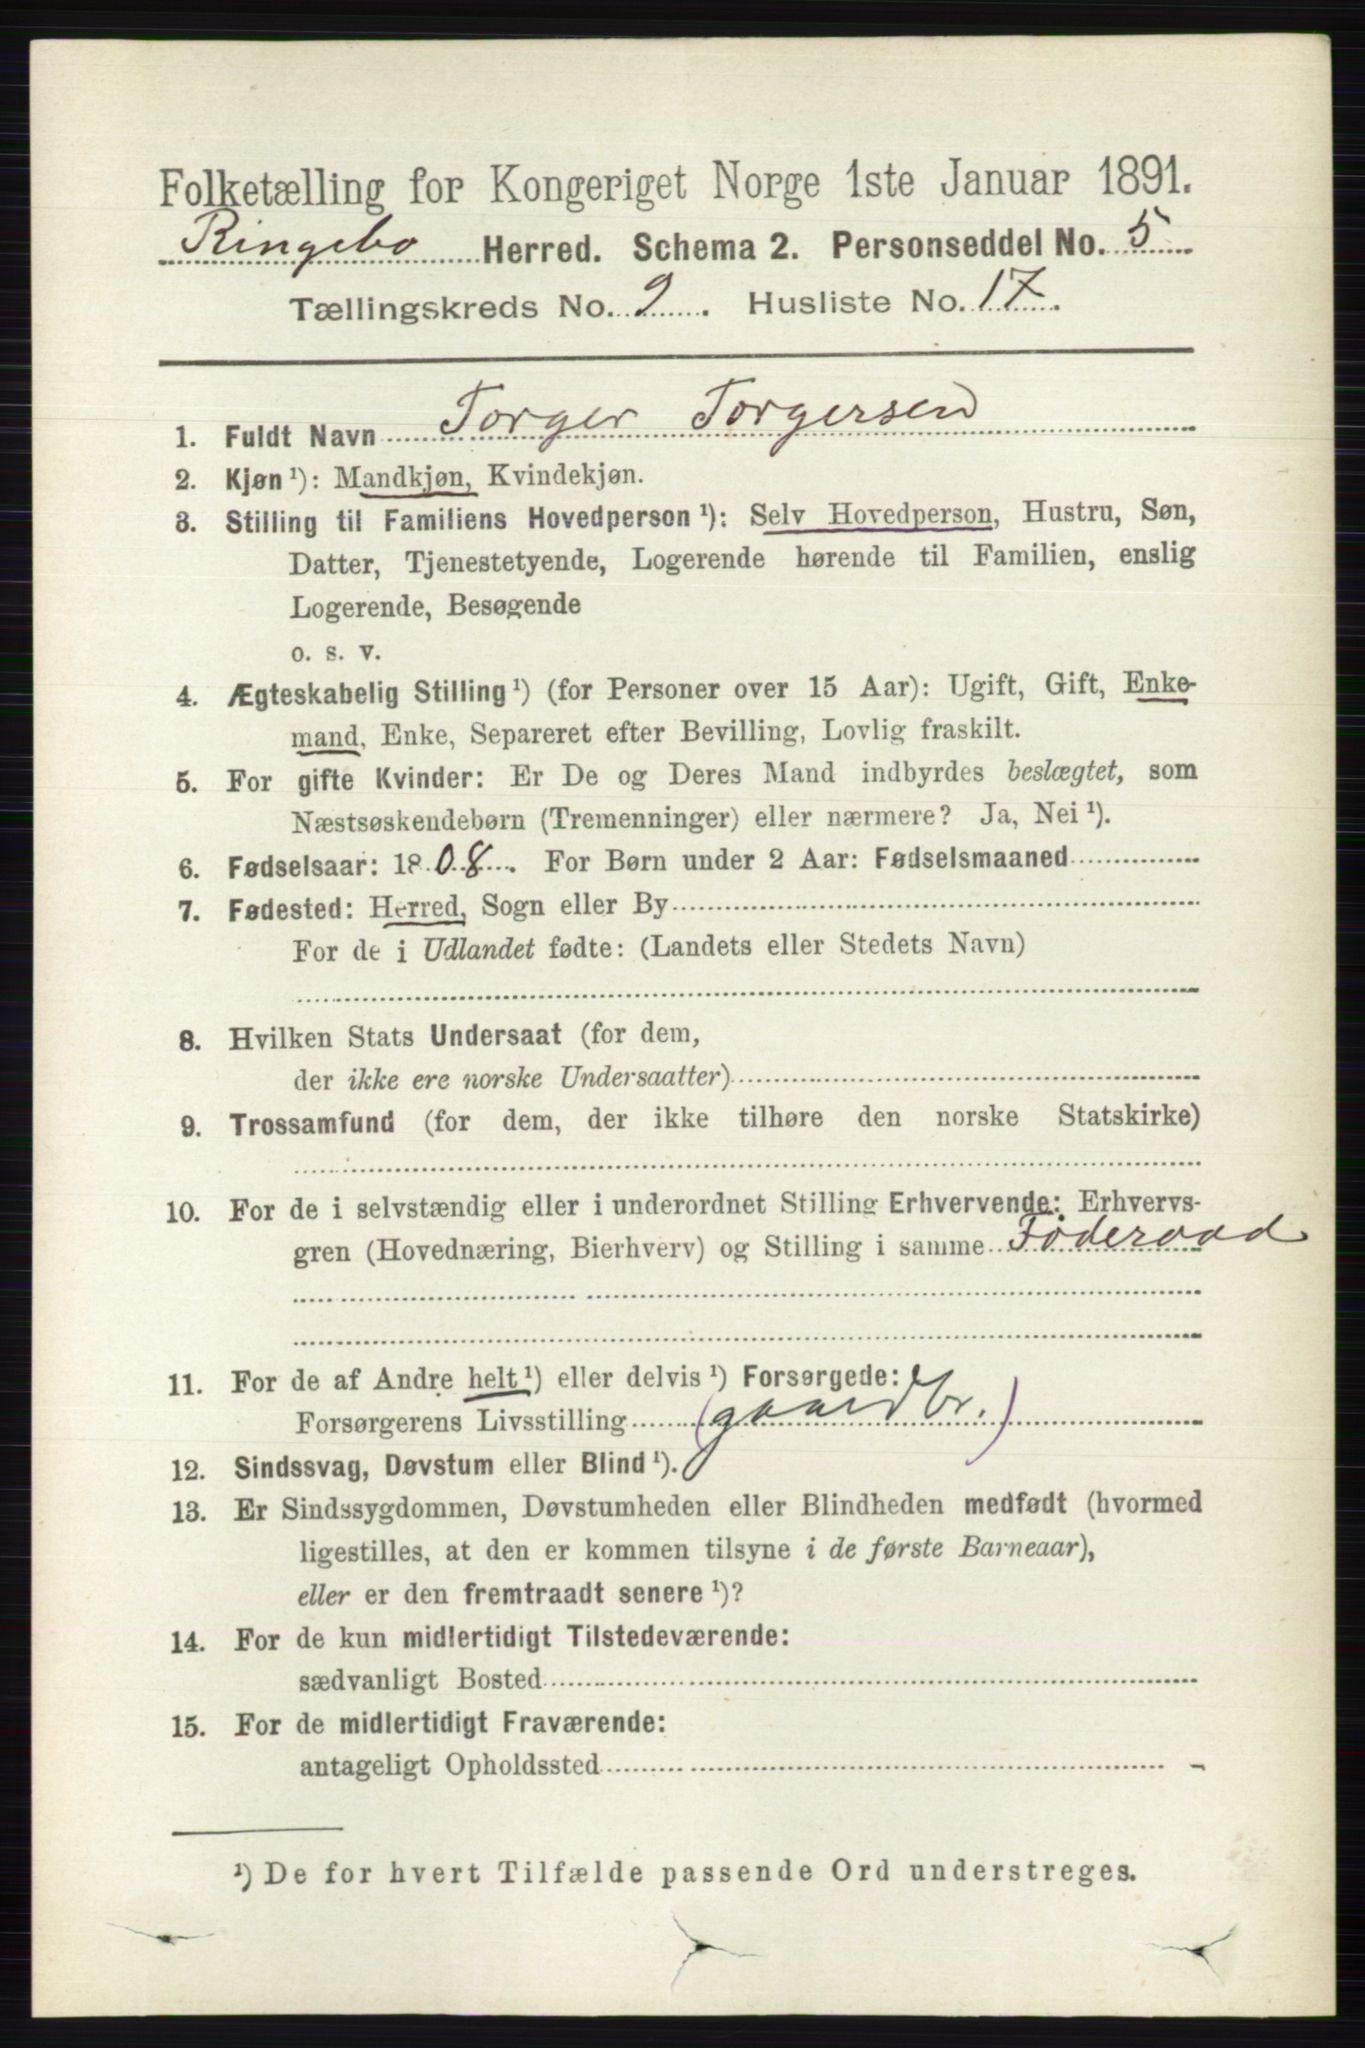 Folketælling for Kongeriget Norge 1ste Januar 1891.
Ringebo Herred. Schema 2. Personseddel No. 5
Tællingskreds No. 9. Husliste No. 17.
1. Fuldt Navn Torger Torgersen
2. Kjøn ¹): Mandkjøn, Kvindekjøn.
3. Stilling til Familiens Hovedperson ¹): Selv Hovedperson, Hustru, Søn,
Datter, Tjenestetyende, Logerende hørende til Familien, enslig
Logerende, Besøgende
o. s. v.
4. Ægteskabelig Stilling ¹) (for Personer over 15 Aar): Ugift, Gift, Enke-
mand, Enke, Separeret efter Bevilling, Lovlig fraskilt.
5. For gifte Kvinder: Er De og Deres Mand indbyrdes beslægtet, som
Næstsøskendebørn (Tremenninger) eller nærmere? Ja, Nei ¹).
6. Fødselsaar: 1808. For Børn under 2 Aar: Fødselsmaaned
7. Fødested: Herred, Sogn eller By
For de i Udlandet fødte: (Landets eller Stedets Navn)
8. Hvilken Stats Undersaat (for dem,
der ikke ere norske Undersaatter)
9. Trossamfund (for dem, der ikke tilhøre den norske Statskirke)
10. For de i selvstændig eller i underordnet Stilling Erhvervende: Erhvervs-
gren (Hovednæring, Bierhverv) og Stilling i samme Føderaad
11. For de af Andre helt ¹) eller delvis ¹) Forsørgede:
Forsørgerens Livsstilling (gaardbr.)
12. Sindssvag, Døvstum eller Blind ¹).
13. Er Sindssygdommen, Døvstumheden eller Blindheden medfødt (hvormed
ligestilles, at den er kommen tilsyne i de første Barneaar),
eller er den fremtraadt senere ¹)?
14. For de kun midlertidigt Tilstedeværende:
sædvanligt Bosted
15. For de midlertidigt Fraværende:
antageligt Opholdssted
¹) De for hvert Tilfælde passende Ord understreges.